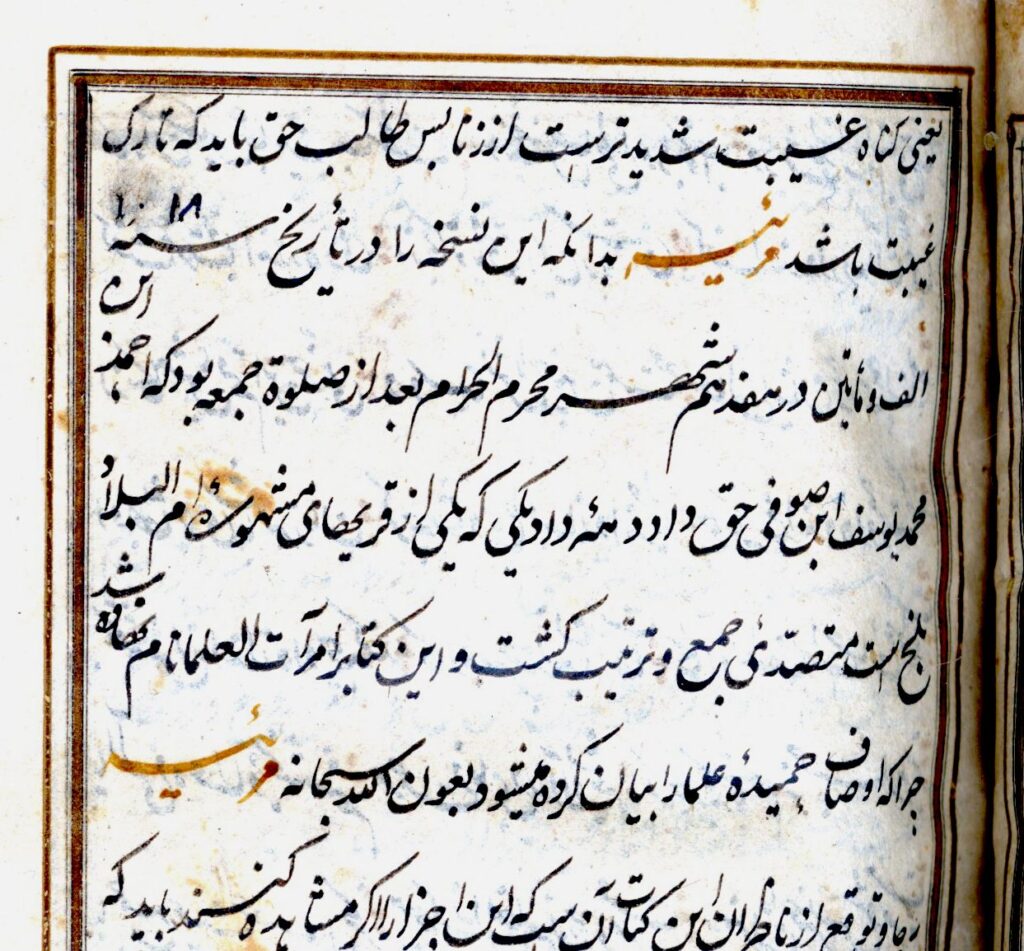 یعنی کناه غیبت شدیدترست از زنا پس طالب حق باید که تارک
غیبت باشد بدانکه این نسخه را در تأریخ سنه ۱۲۱۸
الف و مأتین در هفدهم شهر محرم الحرام بعد از صلوة جمعه بود که احمد ابن
محمد یوسف ابن صوفی حق داد دهنه دادیکی که یکی از قریهای مشهوره ام البلاد
بلخ است متصدئ جمع و ترتیب کشت و این کتابرا مرآت العلما نام نهاده شد
چراکه اوصاف حمیدۀ علما را بیان کرده میشود بعون الله سبحانه
رجا و توقع از ناظران این کتاب آن ست که این اجزا را اکر مشاهده کنند باید که